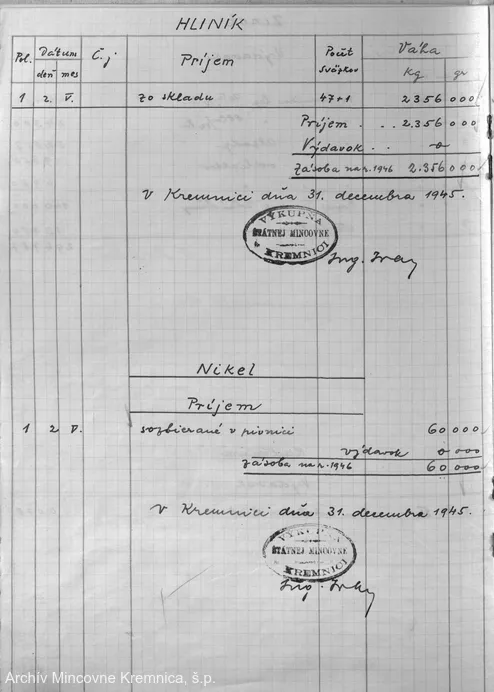 HLINÍK
Pol. Dátum Č.j Príjem Počet Sväzkov Váha
deň mes kg gr
1 2. V. zo skladu 47+1 2356 000
Príjem . . . 2.356 000
Výdavok 0
Zásoba na r. 1946 2.356 000
V Kremnici dňa 31. decembra 1945.
VÝKUPŇA
ŠTÁTNEJ MINCOVNE
KREMNICI
Ing.
Nikel
Príjem
1 2 V. sozbierané v pivnici 60 000
výdavok 0 000
zásoba na r. 1946 60 000
V Kremnici dňa 31. decembra 1945.
VÝKUPŇA
ŠTÁTNEJ MINCOVNE
KREMNICI
Ing.
Archív Mincovne Kremnica, š.p.